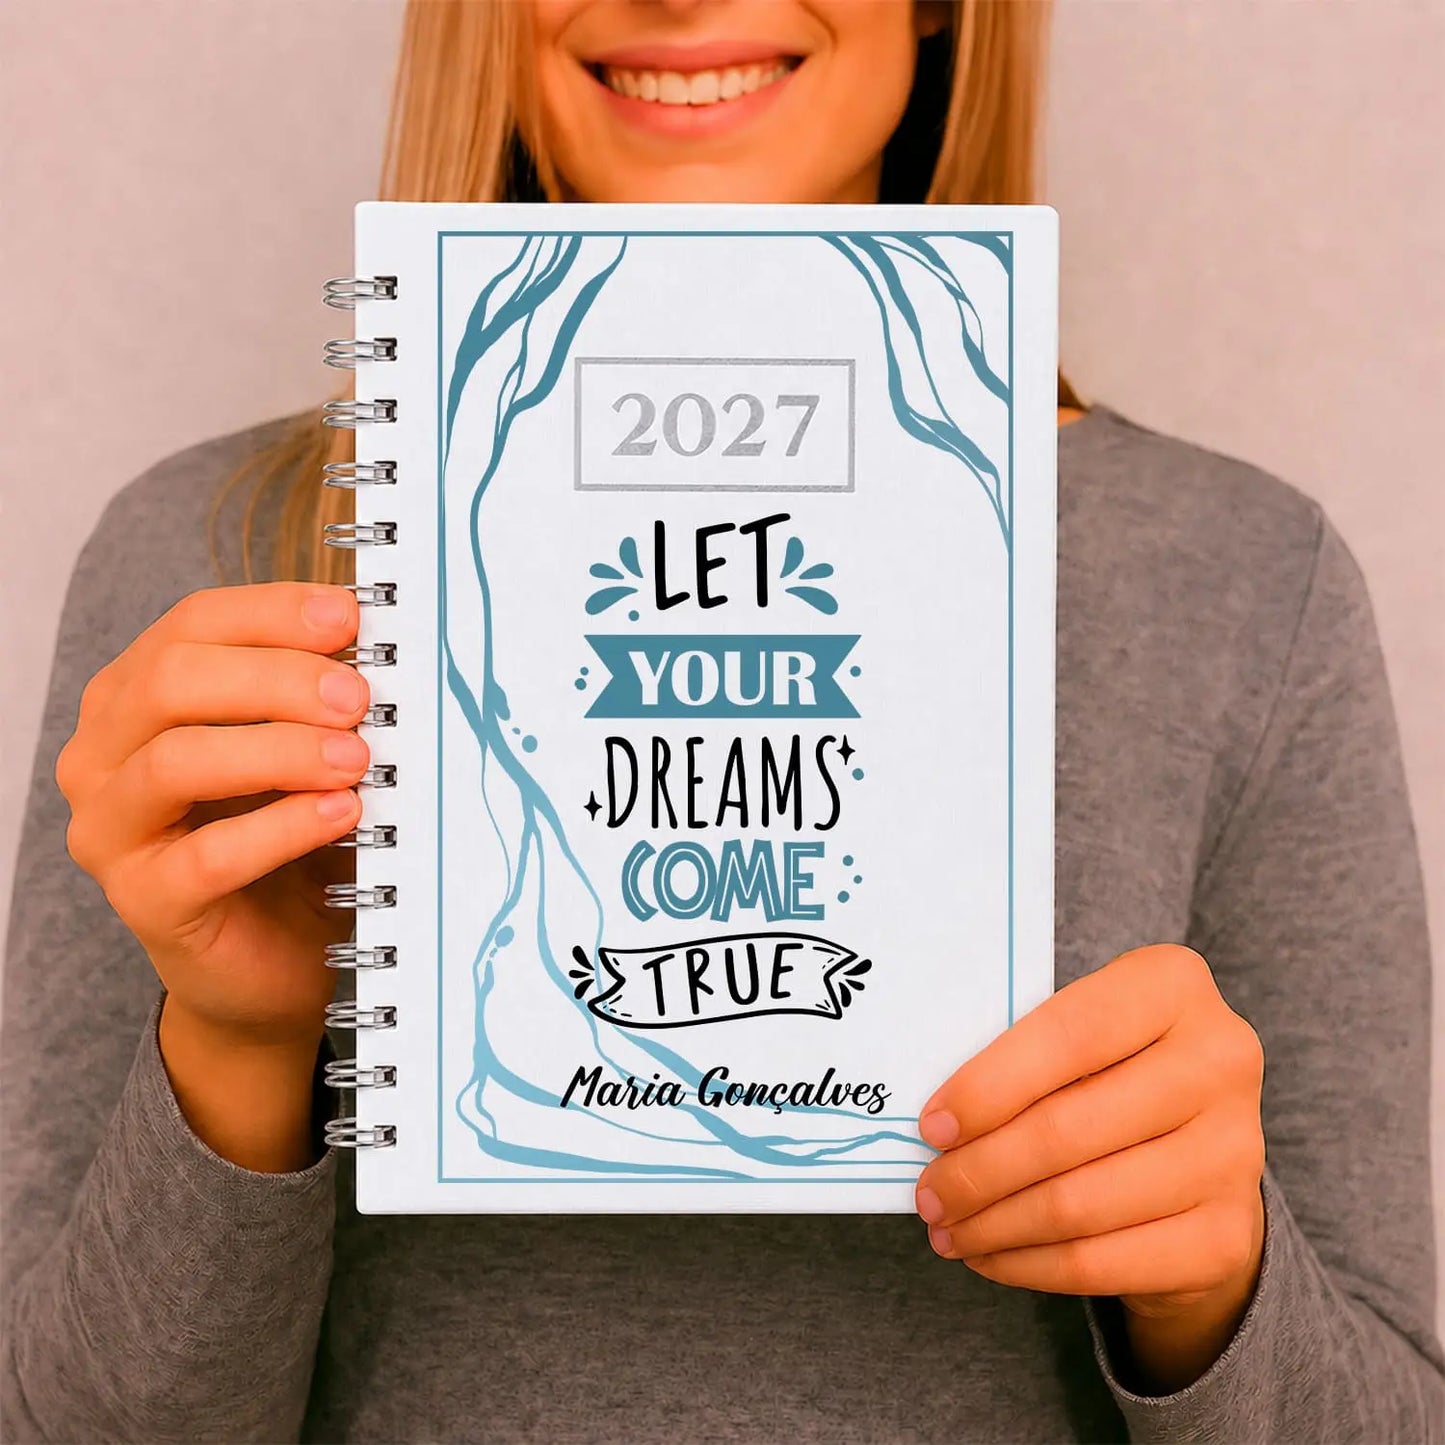 2027
LET
YOUR
DREAMS
COME
TRUE
Maria Gonçalves